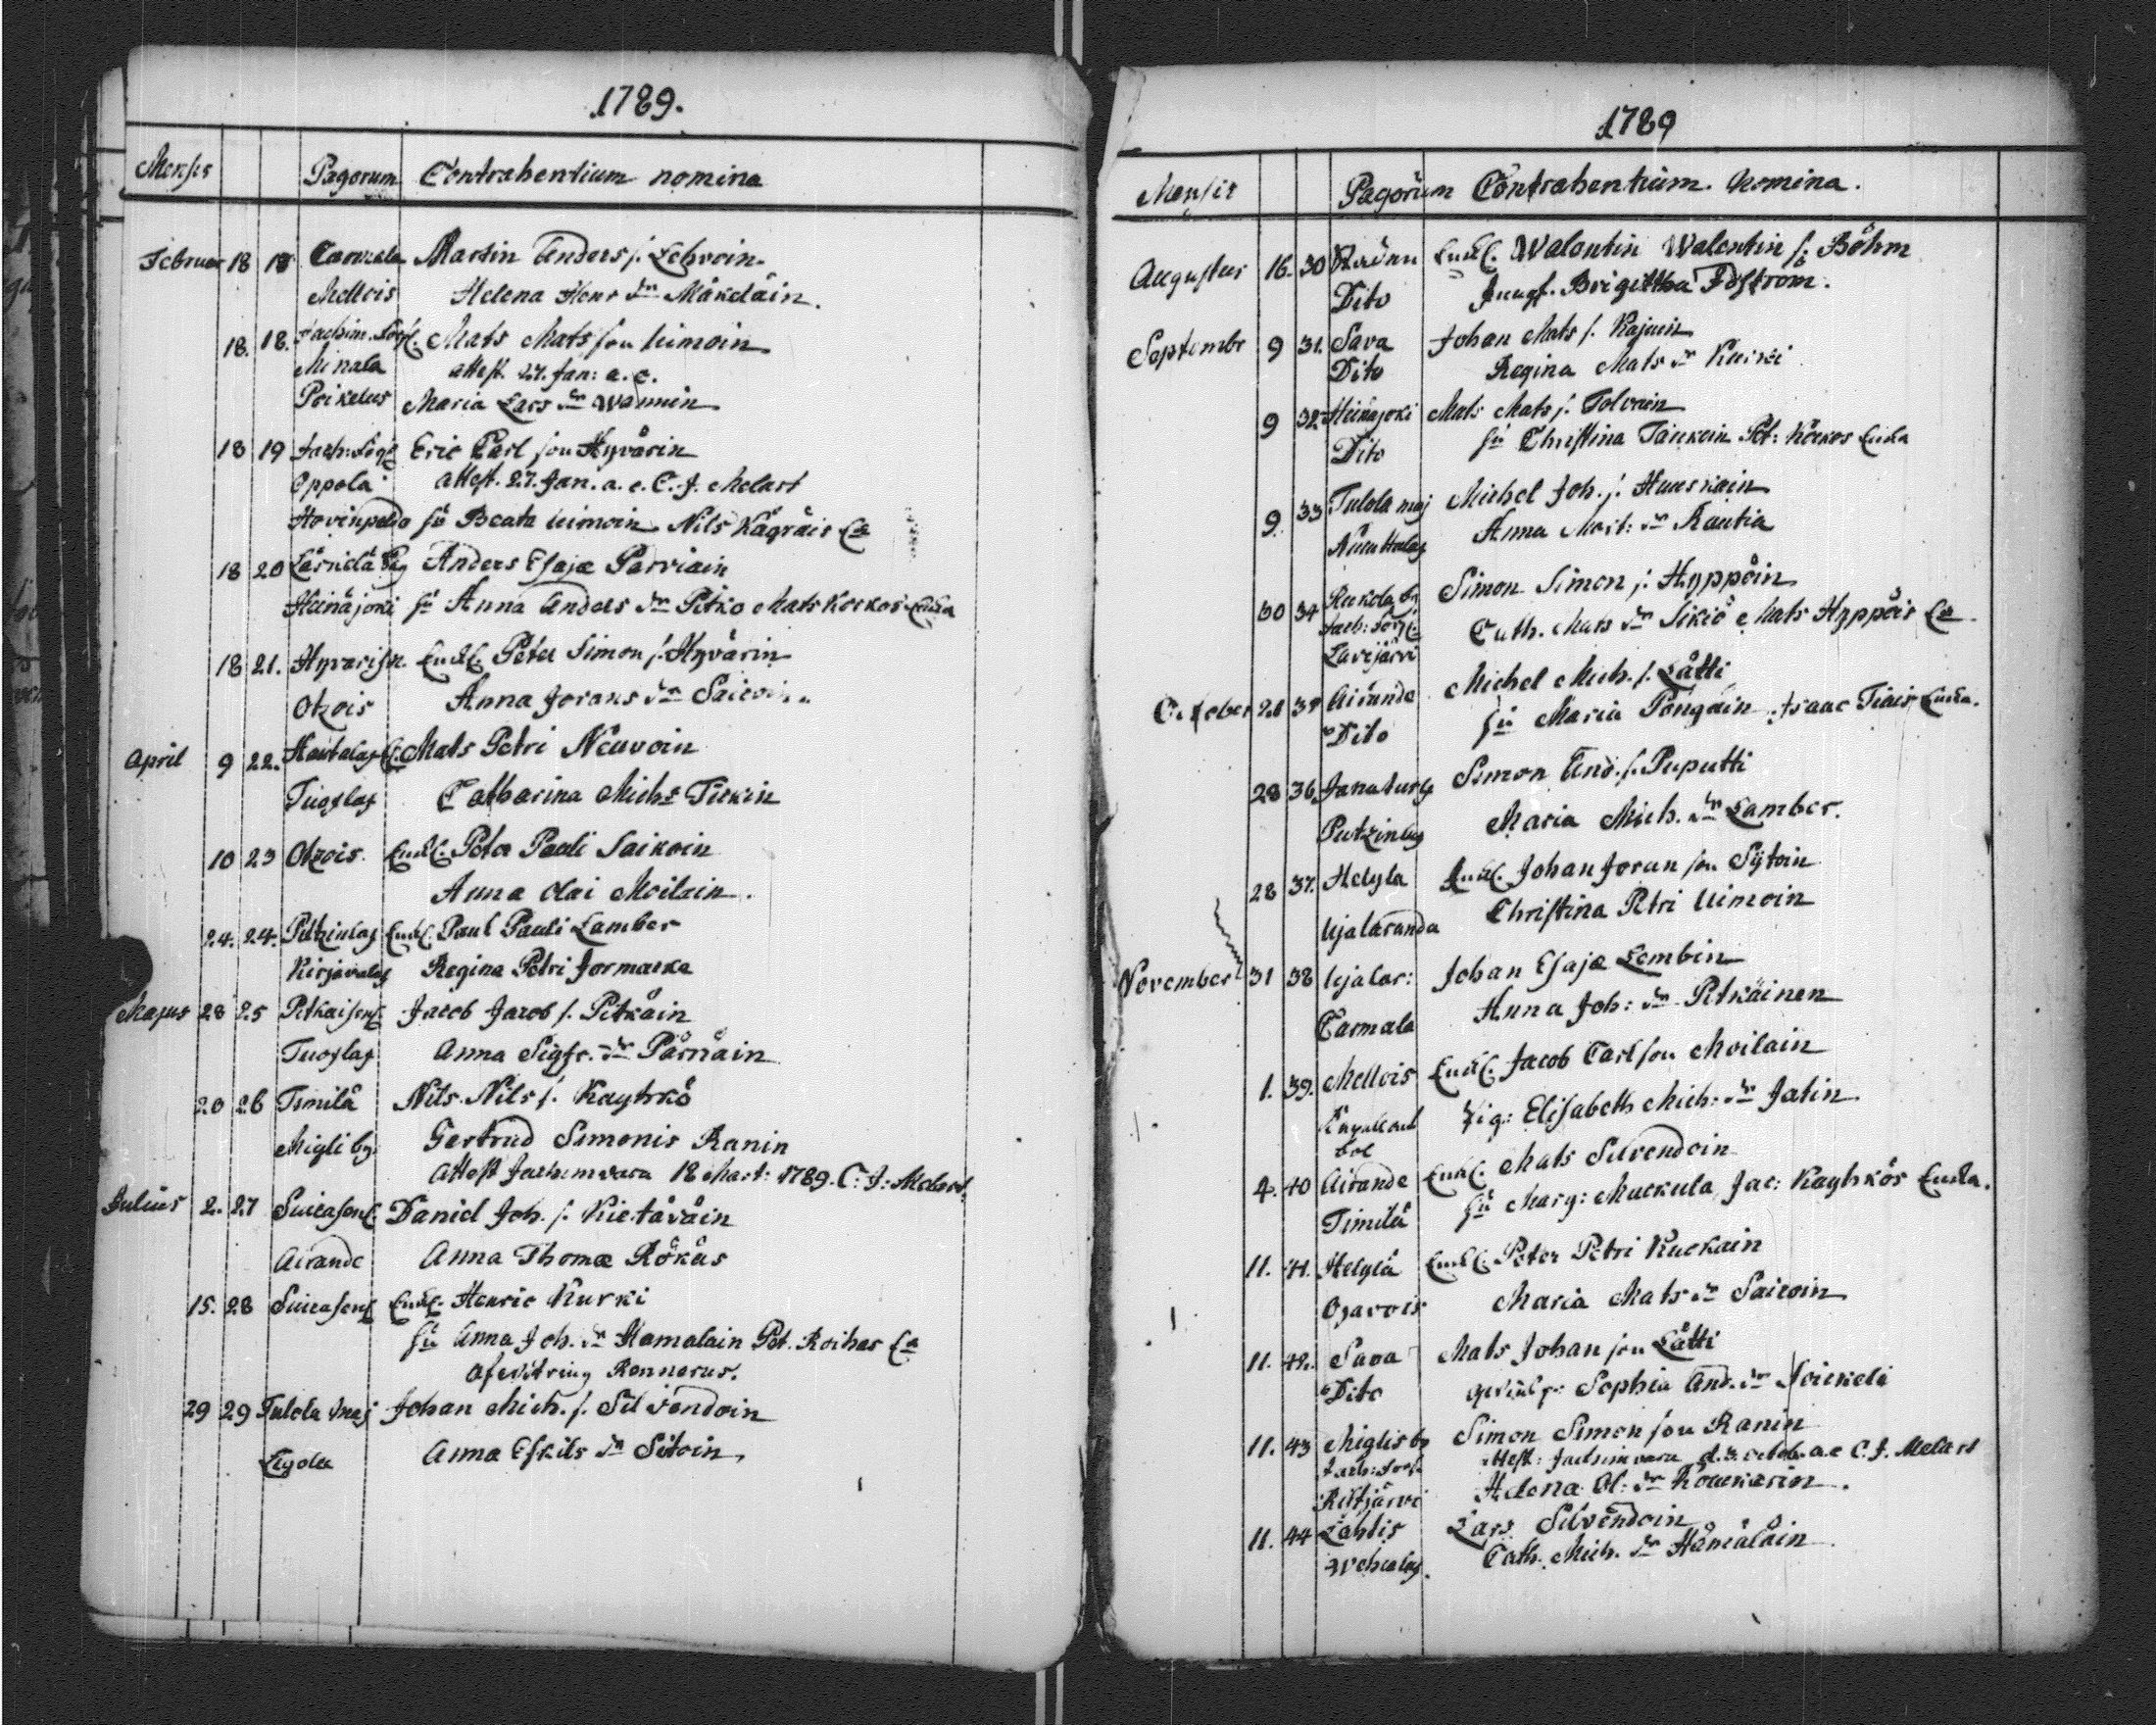 1789.
Mensis Pagorum Contrahentium nomina
Februar 18 18 Carmala Martin Anders s. Lehvoin
Mellois Helena Henr dr Mäkeläin.
18. 18. Jachim. Sog. Mats Mats son Uimoin
Minala attest. 27. Jan: a. c.
Poikelus Maria Lars dr Wainin
18 19 Jach: Sog Eric Carl son Hyvärin
Oppola attest. 27. Jan. a. c. C. J. Melart
Hovinpeldo Beata Uimoin Nils Kägräis
18 20 Anders Esajæ Parviain
Heinäjoki Anna Anders dr Pitko Mats Korkos Enka
18 21. Hyvarisn. Enkl. Peter Simon s. Hyvärin
Otzois Anna Jorans dr Saicoin
April 9 22. Hautalax Mats Petri Neuvoin
Tuoslax Catharina Michs Tirkin
10 23 Otzois. Enkl. Peter Pauli Saikoin
Anna Olai Moilain.
24. 24. Putzinlax Enkl. Paul Pauli Lamber
Kirjavalax Regina Petri Jormacka
Majus 28 25 Jacob Jacob s. Pitkäin
Tuoslax Anna Sigfr. dr Pärnäin
28 26 Timilä Nils Nils s. Kayhkö
Migli by. Gertrud Simonis Ranin
Attest Jachimvara 18 Mart: 1789. C: J: Melart
Julius 2. 27 Daniel Joh. s. Kietäväin
Airande Anna Thomæ Rökäs
15. 28 Enkl. Henric Kurki
Anna Joh. dr Hamalain Pet. Roihas
Rennerus.
29 29 Tulola maj Johan Mich. s. Silvendoin
Anna Eskils dr Sitoin.
1789
Mensis Pagorum Contrahentium. Nomina.
Augustus 16. 30 Enkl. Walentin Walentin s. Böhm
Dito Jungf. Brigittha
Septembr 9 31. Sava Johan Mats s. Kajuin
Dito Regina Mats dr Kurki
9 32 Heinäjoki Mats Mats s. Tolvain
Dito Christina Pet: Korkos Enka
9. 33 Tulola maj Michel Joh. s. Huuskain
Anna Mart: dr Rautia
30 34 Simon Simon s. Hyppöin
Jach: Sog. Cath. Mats dr Sikiö Mats Hyppöis
Lavijärvi
October 28 35 Airande Michel Mich. s. Lätti
Dito Maria Pöngäin Isaac Tiäis Enka.
28 36. Simon And. s. Puputti
Putzinlax Maria Mich. dr Lamber.
28 37. Helyla Enkl. Johan Joran son Sytoin
Ujalaranda Christina Petri Uimoin
November 31 38 Ujalar: Johan Esajæ Lembin
Carmala Anna Joh: dr Pitkäinen
1. 39. Mellois Enkl. Jacob Carl son Moilain
bol Pig: Elisabeth Mich: dr Jatin.
4. 40 Airande Enkl. Mats Silvendoin
Timilä Marg: Muckula Jac: Kayhkös Enka.
11. 41. Helylä Enkl. Peter Petri Kuckain
Maria Mats dr Saicoin
11. 42. Sava Mats Johan son Lätti
Dito Sophia And. dr
11. 43 Miglis by Simon Simon son Ranin
Attest: Jachimvara d. 3. octob. a.c C. J. Melart
Helena Ol: dr
11. 44 Lahtis Lars Silvendoin
Cath. Mich. dr Hämäläin